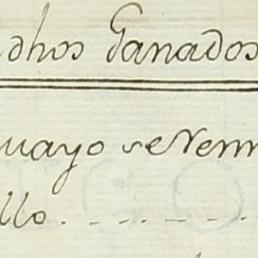 dhos Ganados
uayo se Vem
llo.